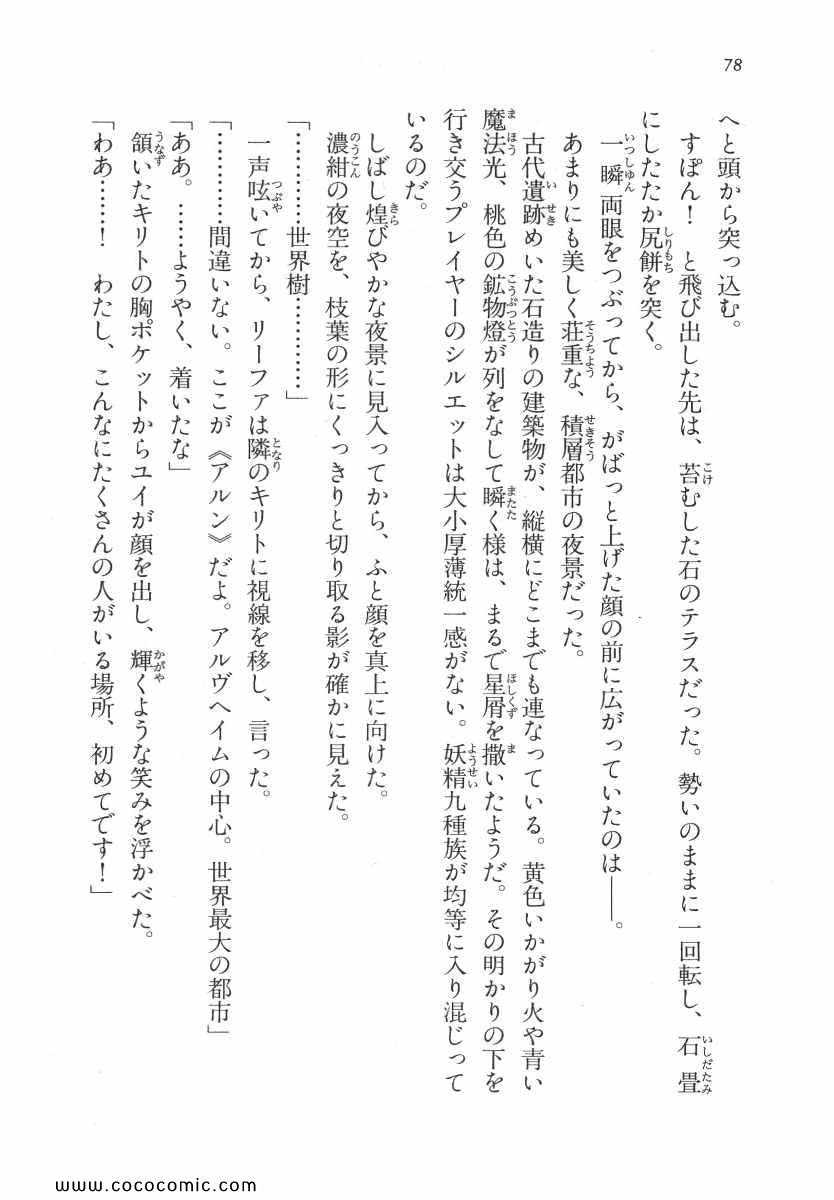 78
へと頭から突っ込む。
すぽん！　と飛び出した先は、苔むした石のテラスだった。勢いのままに一回転し、石畳
にしたたか尻餅を突く。
一瞬両眼をつぶってから、がばっと上げた顔の前に広がっていたのは――。
あまりにも美しく荘重な、積層都市の夜景だった。
古代遺跡めいた石造りの建築物が、縦横にどこまでも連なっている。黄色いかがり火や青い
魔法光、桃色の鉱物燈が列をなして瞬く様は、まるで星屑を撒いたようだ。その明かりの下を
行き交うプレイヤーのシルエットは大小厚薄統一感がない。妖精九種族が均等に入り混じって
いるのだ。
しばし煌びやかな夜景に見入ってから、ふと顔を真上に向けた。
濃紺の夜空を、枝葉の形にくっきりと切り取る影が確かに見えた。
「…………世界樹…………」
一声呟いてから、リーファは隣のキリトに視線を移し、言った。
「…………間違いない。ここが《アルン》だよ。アルヴヘイムの中心。世界最大の都市」
「ああ。……ようやく、着いたな」
頷いたキリトの胸ポケットからユイが顔を出し、輝くような笑みを浮かべた。
「わあ……！　わたし、こんなにたくさんの人がいる場所、初めてです！」
www.cococomic.com